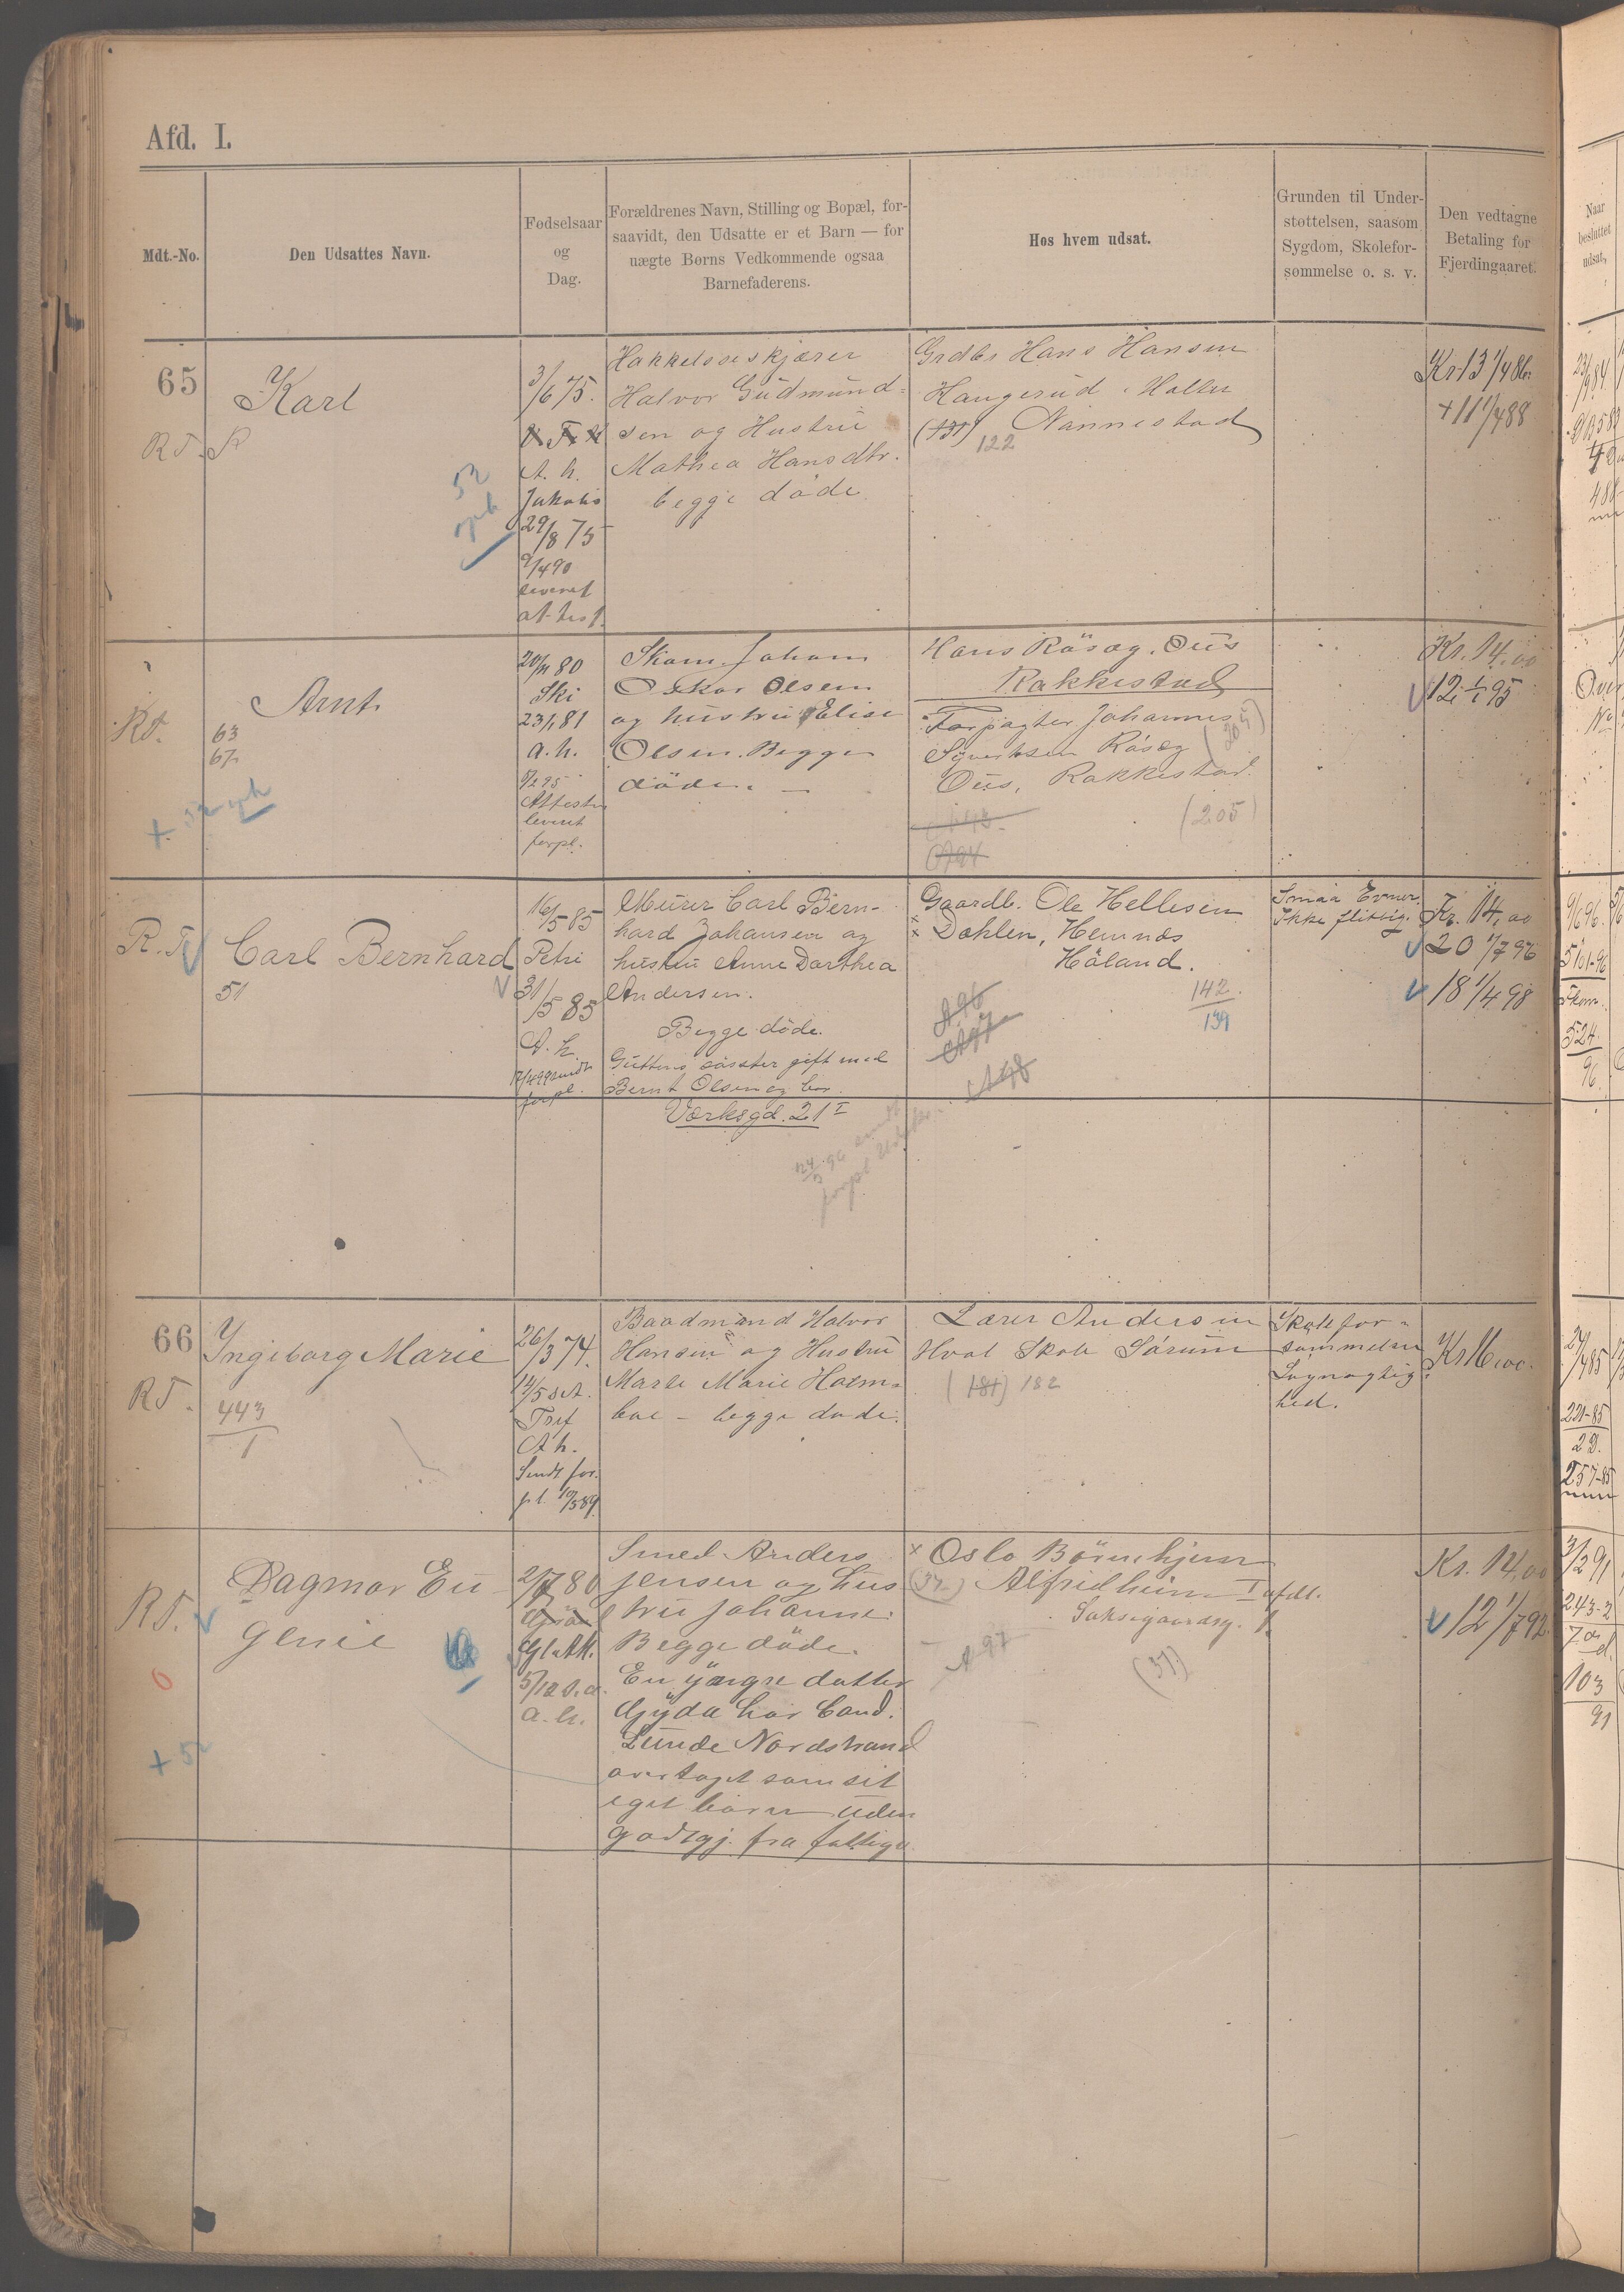 Afd. I.
Mdt.-No.
Den Udsattes Navn.
Fødselsaar
og
Dag.
Forældrenes Navn, Stilling og Bopæl, for-
saavidt, den Udsatte er et Barn — for
uægte Børns Vedkommende ogsaa
Barnefaderens.
Hos hvem udsat.
Grunden til Under-
støttelsen, saasom
Sygdom, Skolefor-
sømmelse o. s. v.
Den vedtagne
Betaling for
Fjerdingaaret.
Naar
besluttet
udsat,
65
RT.
Karl
52
3/6 75.
A. h.
Jakobs
29/8 75
9/4 90
leveret
attest
Hakkelsesskjærer
Halvor Gudmund-
sen og Hustru
Mathea Hansdtr.
begge døde
Grdbr Hans Hansen
Haugerud Holter
(131) Nannestad
122
Kr 13 1/4 86
+ 11 1/4 88
RT.
Arnt
63
67
20/11 80
Ski
23/1 81
a. h.
Attest
leveret
forpl.
Skom. Johan
Oskar Olsen
og hustru Elise
Olsen. Begge
døde. —
Hans Råsæg. Ous
Rakkestad
Forpagter Johannes
Syvertsen Råsæg
Ous, Rakkestad.
(205)
Kr. 14,00
12 1/1 95
R. T.
Carl Bernhard
51
16/5 85
Petri
31/5 85
A. h.
forpl.
Murer Carl Bern-
hard Johansen og
hustru Anne Dorthea
Andersen.
Begge døde.
Guttens søster gift med
Bernt Olsen og bor
Værksgd. 21 I
Gaardb. Ole Hellesen
Dahlen, Hemnæs
Høland.
A96
A97
A98
142.
139
Smaa Evner.
Ikke flittig.
Kr. 14,00
20 1/7 96
18 1/4 98
66
RT.
Ingeborg Marie
443
1
26/3 74.
Tref
A h.
Sendt for-
pl. 10/5 89
Baadmand Halvor
Hansen og Hustru
Marte Marie Holm-
boe - begge døde.
Lærer Andersen
Hval Skole Sørum
(181) 182
Skolefor-
sømmelse
Løgnagtig-
hed.
Kr 16,00.
RT.
Dagmar Eu
genie
+ 52
2/7 80
a. h.
Smed Anders
Jensen og hus
tru Johanne.
Begge døde.
En yngre datter
Gyda har Cand.
Lunde Nordstrand
overtaget som sit
eget barn uden
godtgj. fra fattigv.
Oslo Børnehjem
Alfredheim I afdl.
Saksegaardsg. 1.
A 97
(37)
Kr. 14,00
12 1/7 92.